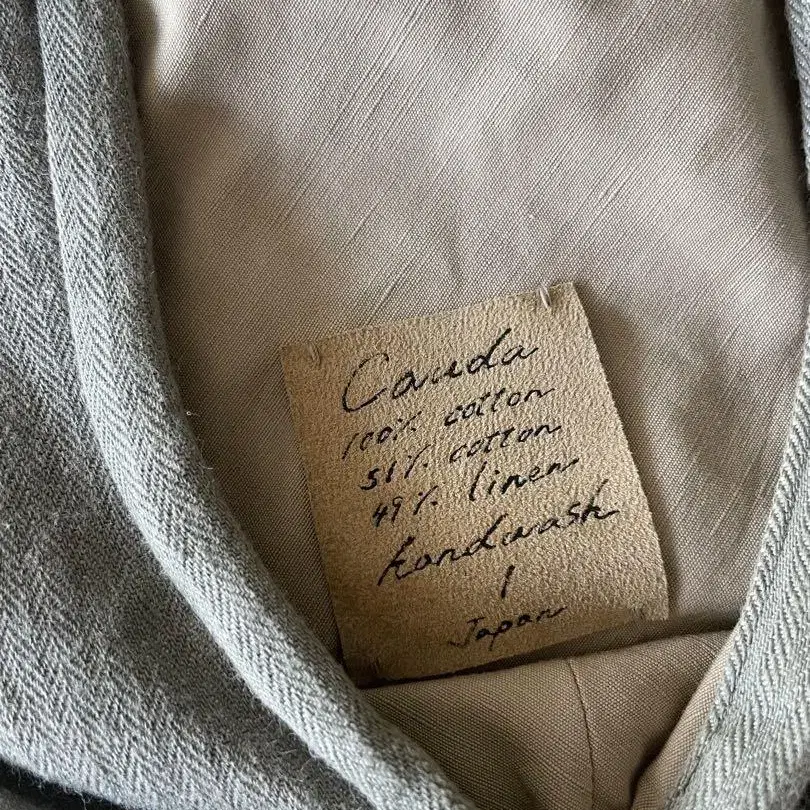 Cauda
100% cotton
51% cotton
49% linen
handwash
1
Japan